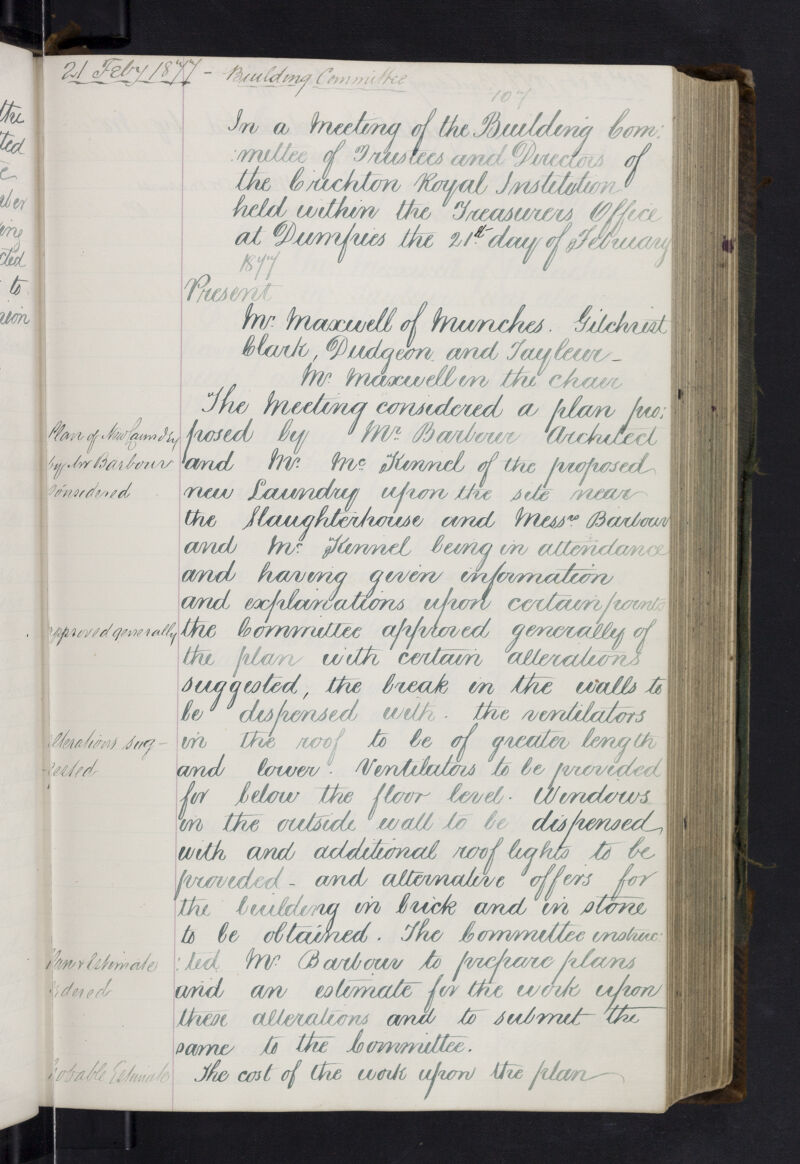 the
ted
to
21 Feby 1877 - Building Committee
107
In a Meeting of the Building Com:
:mittee of Trustees and Directors of
the Crichton Royal Institution
held within the Treasurers Office
at Dumfries the 21st day of February
1877
Present
Mr. Maxwell of Munches. Gilchrist
Clark, Dudgeon and Tayleur -
Mr. Maxwell in the chair
The Meeting considered a plan pro:
Plan of New Laundry
posed by Mr. Barbour Architect
by Mr Barbour
and Mr. Mc. Kinnel of the proposed
considered
new Laundry upon the site near
the Slaughterhouse and Messrs Barbour
and Mc. Kinnel being in attendance
and having given information
and explanations upon certain points
approved generally
the Committee approved generally of
the plan with certain alterations
suggested, the break in the walls to
be dispensed with. the ventilators
alterations sug-
in the roof to be of greater length
gested
and lower. Ventilators to be provided
for below the floor level. Windows
in the outside wall to be dispensed
with and additional roof lights to be
provided - and alternative offers for
the building in brick and in stone
to be obtained. The Committee instruc:
Plan & Estimate
:ted Mr. Barbour to prepare plans
ordered
and an estimate for the work upon
these alterations and to submit the
same to the Committee.
Probable Estimate
The cost of the work upon the plan